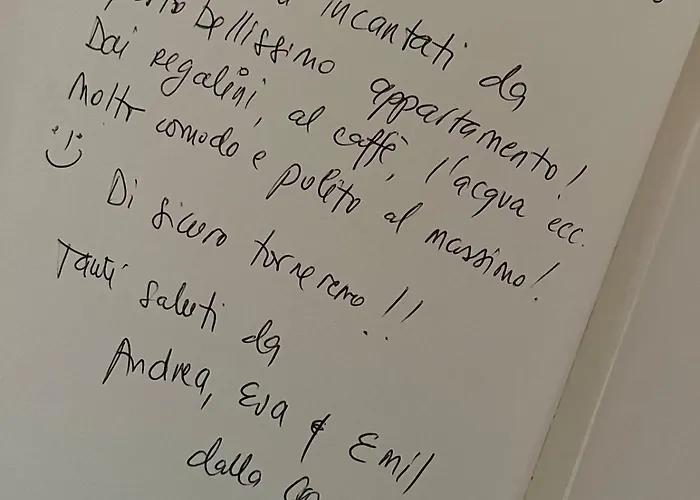 incantati da
bellissimo appartamento!
Dai regalini, al caffè, l'acqua ecc.
Molto comodo e pulito al massimo!
Di sicuro torneremo!!
Tanti saluti da
Andrea, Eva & Emil
dalla